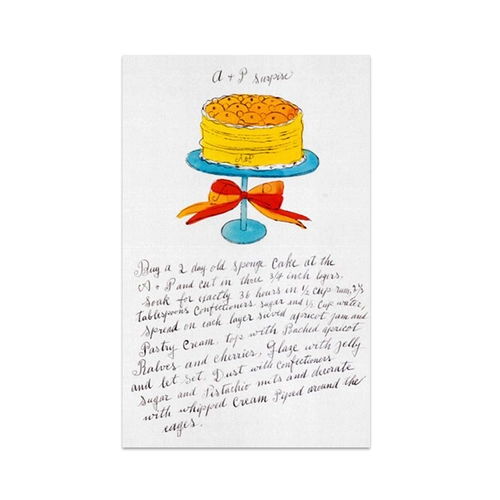 A + P Surprise
A+P
Buy a 2 day old sponge cake at the
A + P and cut in three 3/4 inch layers.
Soak for exactly 36 hours in 1/2 cup rum, 2 1/2
tablespoons Confectioners sugar and 1/2 Cup water,
spread on each layer sieved apricot jam and
Pastry Cream. top with Poached apricot
Halves and cherries, Glaze with jelly
and let set. Dust with confectioners
sugar and Pistachio nuts and decorate
with whipped Cream Piped around the
edges.